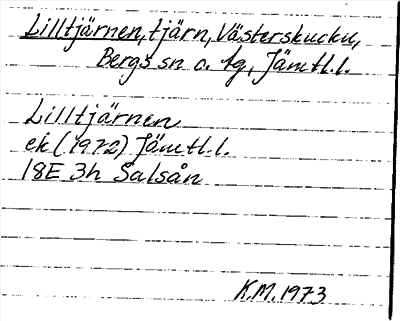 Lilltjärnen, tjärn, Västerskucku,
Bergs sn o. tg, Jämtl.l.
Lilltjärnen
ek (1972) Jämtl.l.
18E 3h Salsån
K.M. 1973